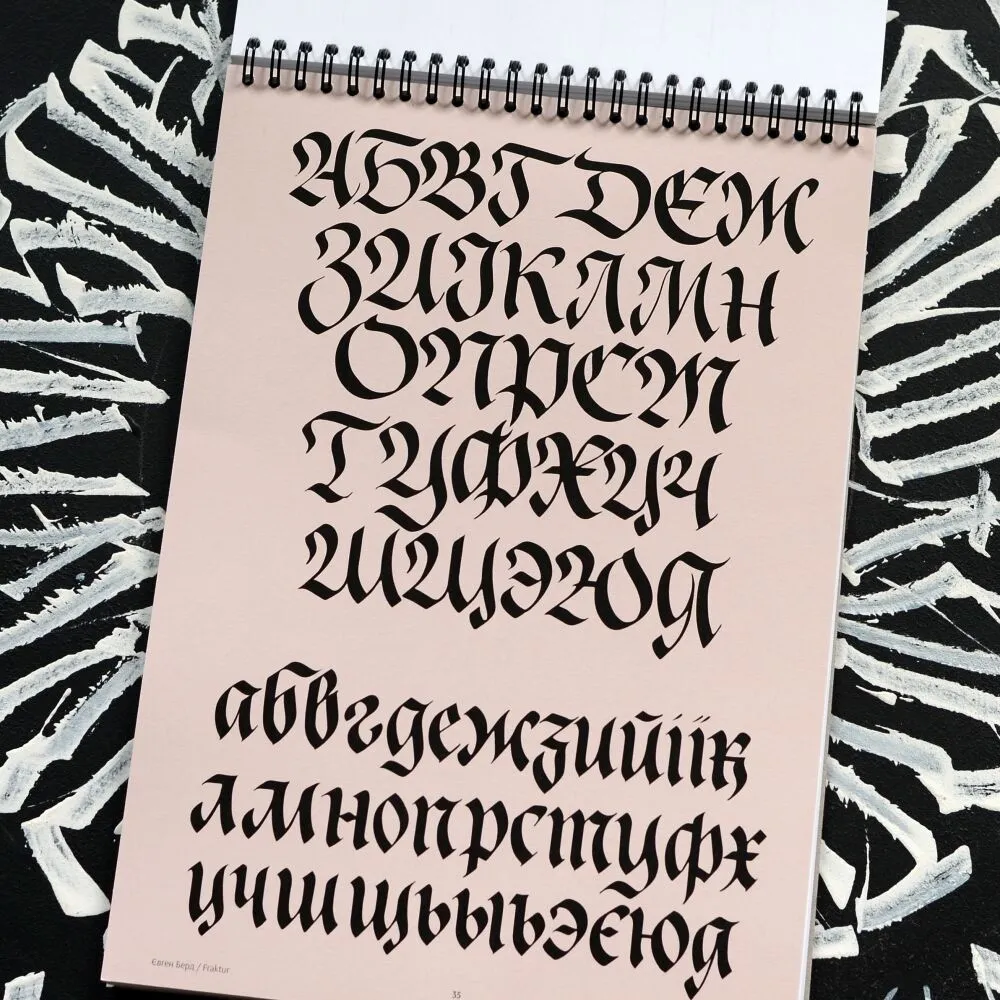 АБВГДЕЖ
ЗИІКЛМН
ОПРСТ
ТУФХЦЧ
ШЩЭЮЯ
абвгдежзийіїк
лмнопрстуфх
цчшщъыьэєюя
Євген Берд / Fraktur
35